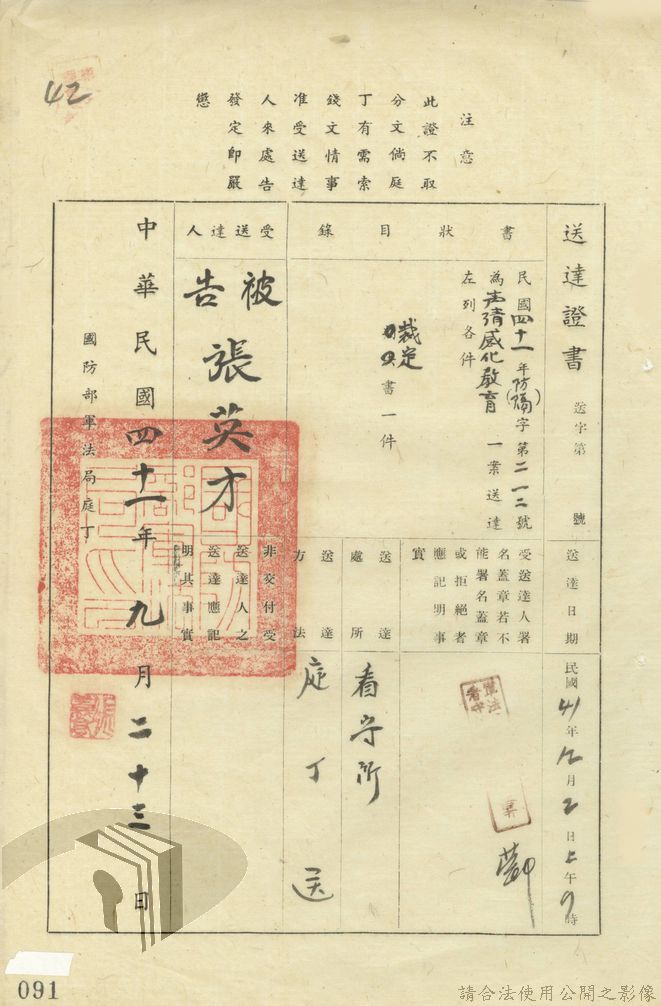 42
注意
此證不取
分文倘庭
丁有需索
錢文情事
准受送達
人來處告
發定即嚴
懲
送達證書
送字第 號
送達日期
民國41年12月2日上午9時
書狀目錄
民國四十一年防(隔)字第二一二號
為声請感化教育一案送達
左列各件
裁定書一件
受送達人署
名蓋章若不
能署名蓋章
或拒絕者
應記明事
實
送達處所
看守所
送達方法
庭丁送
受送達人
被告
張英才
非交付受
送達人之
送達應記
明其事實
中華民國四十一年九月二十三日
國防部軍法局庭丁
091
請合法使用公開之影像